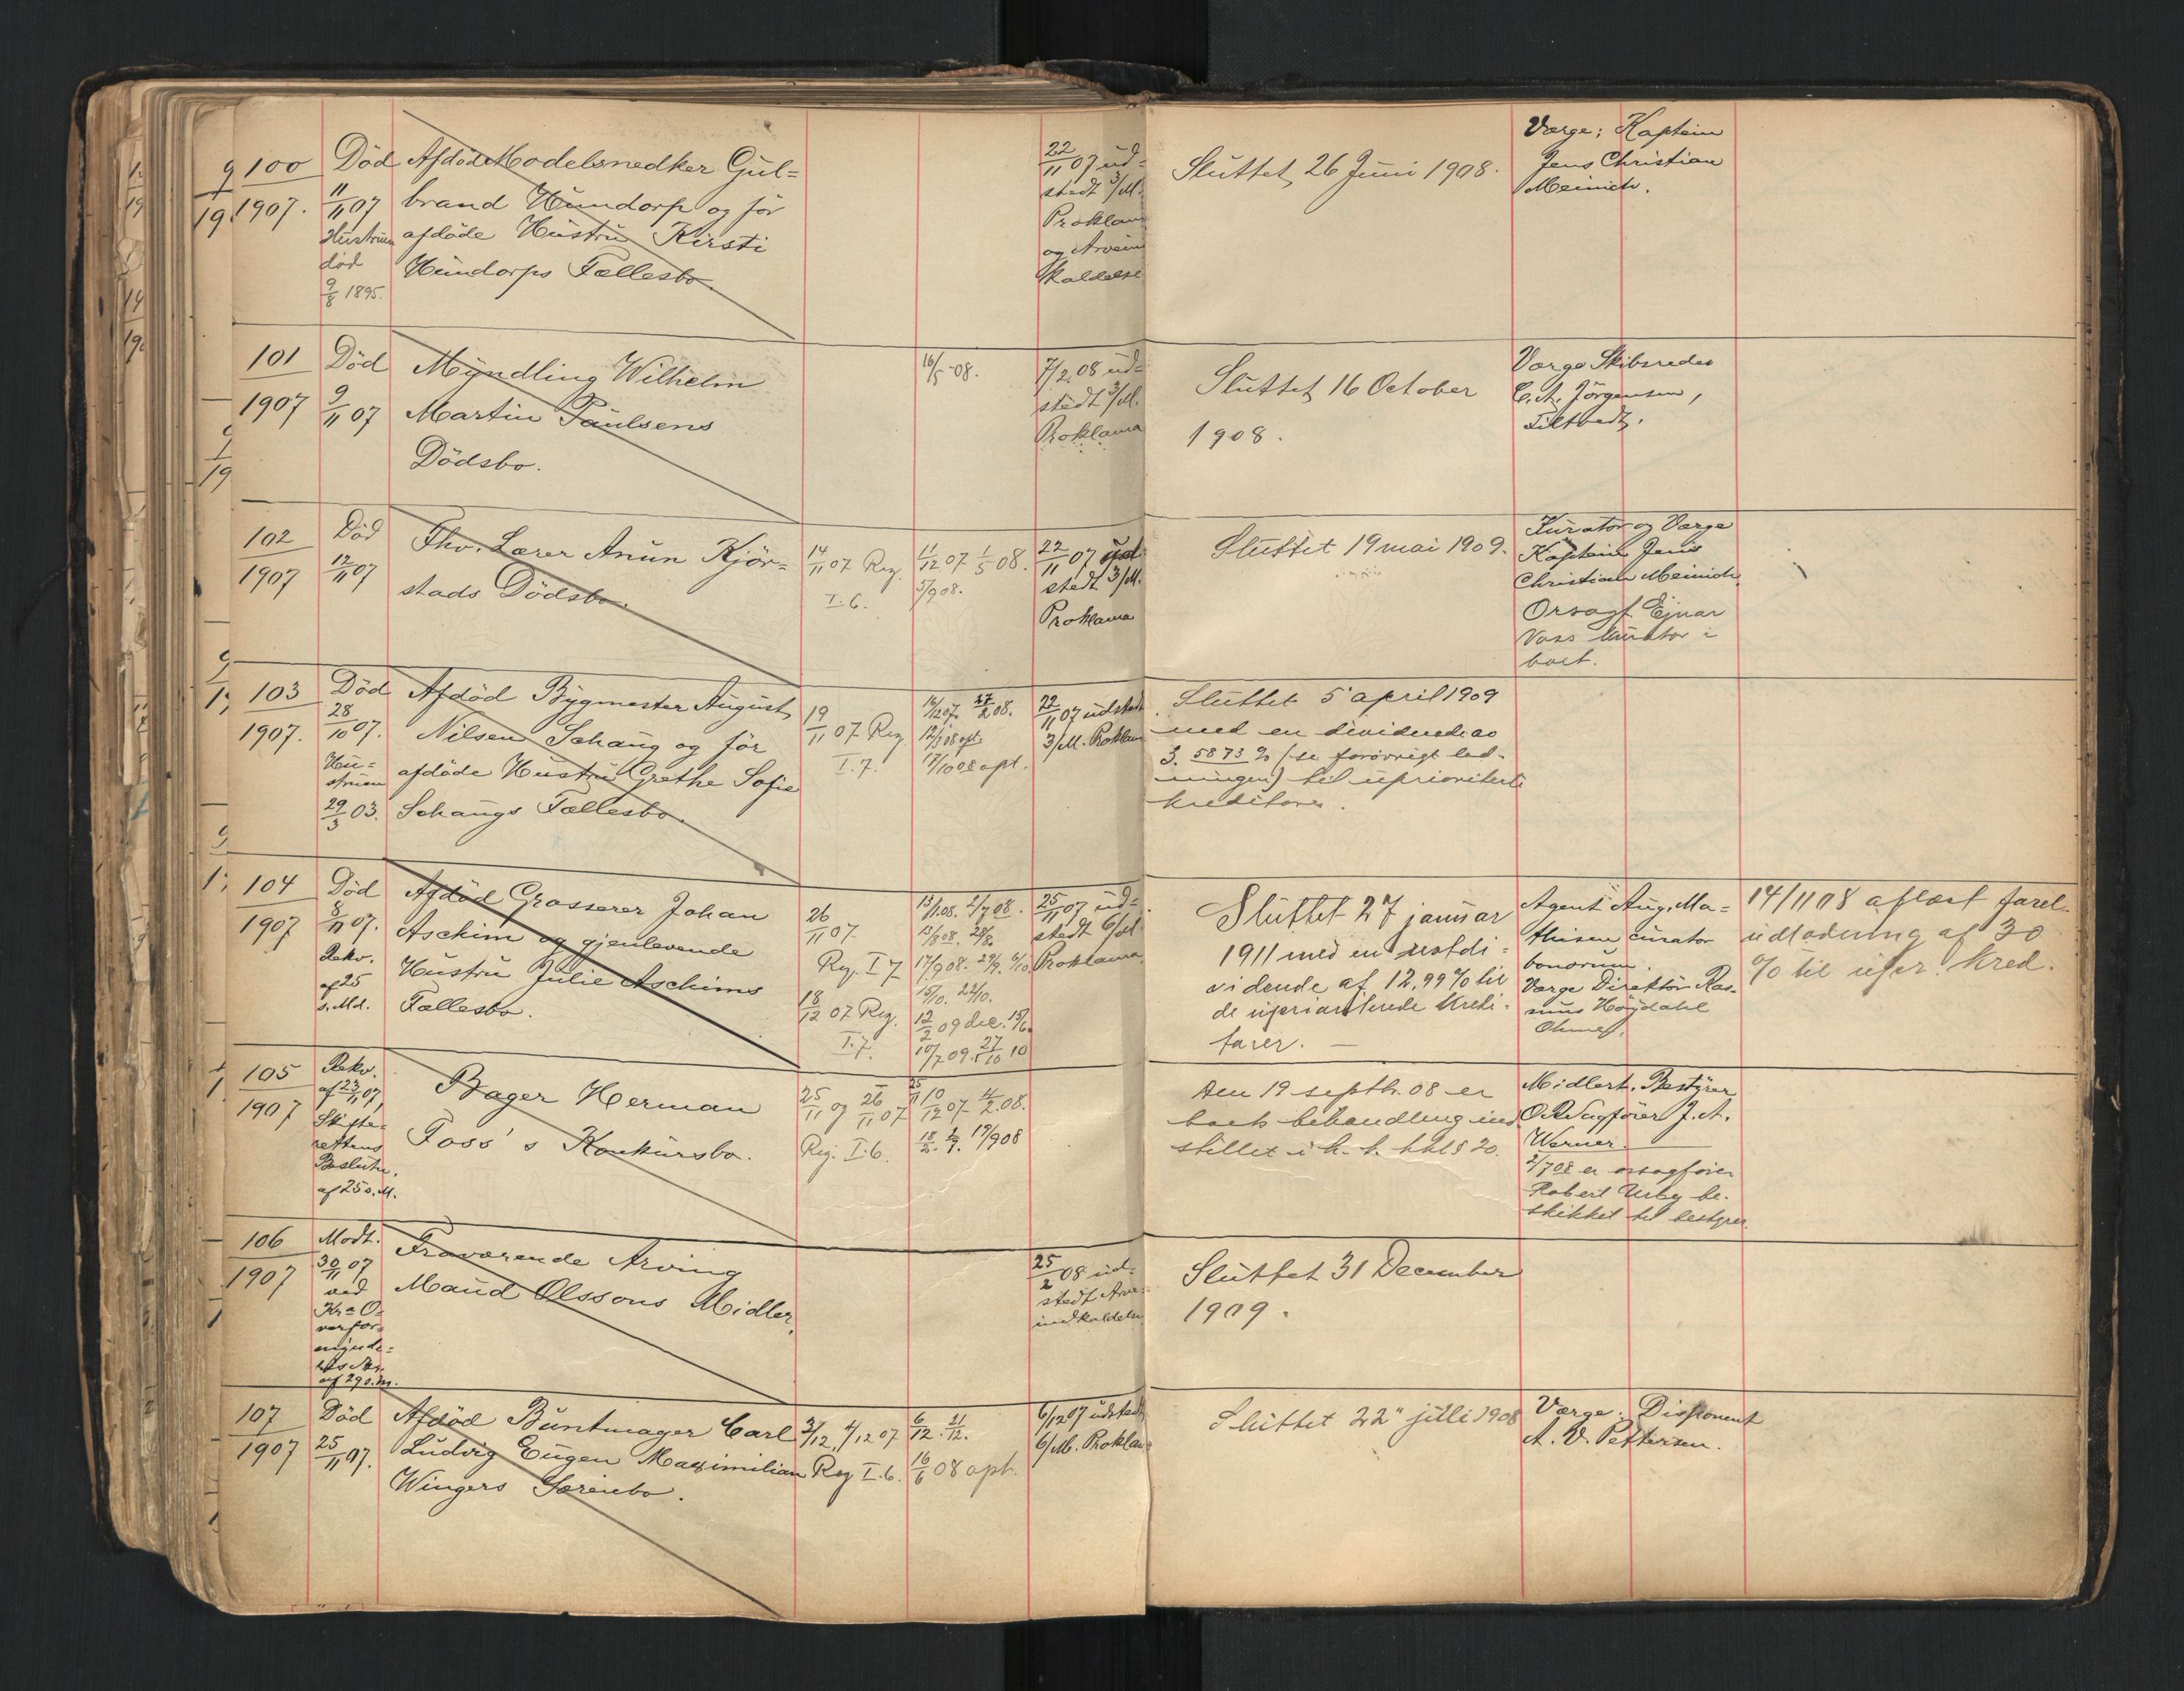 100
1907.
Död
11/11 07
Hustruen
död
9/8 1895.
Afdöde Modelsnedker Gul=
brand Hundorp og för
afdöde Hustru Kirsti
Hundorps Fællesbo.
22/11 07 ud=
stedt 3/M.
Proklam
og Arvein
kaldelse
Sluttet 26 Juni 1908.
Værge: Kaptein
Jens Christian
Meinich.
101
1907
Död
9/11 07
Myndling Wilhelm
Martin Paulsens
Dödsbo.
16/5 -08.
7/2.08 ud=
stedt 3/M.
Proklama
Sluttet 16 October
1908.
Værge Skibsreder
C. A. Jörgensen,
102
1907
Död
12/11 07
Fhv. Lærer Anun Kjör=
stads Dödsbo.
14/11 07 Reg.
I. 6.
11/12 07 1/5 08.
5/9 08.
22/11 07 ud
stedt 3/M.
Proklama
Sluttet 19 mai 1909.
Kurator og Værge
Kaptein Jens
Christian Meinich
Orsagf. Ejnar
Voss kurator i
boet.
103
1907.
Död
28/10 07.
Hu=
struen
29/3 03.
Afdöd Bygmester August
Nilsen Schaug og för
afdöde Hustru Grethe Sofie
Schaugs Fællesbo.
19/11 07 Reg
I. 7.
16/12 07. 27/2 08.
17/10 08 opt.
22/11 07 udsted
3/M. Proklam
Sluttet 5 april 1909
med en dividende av
3. 5873 % (se forövrigt led-
ningen) til upriorite
kreditorer.
104
1907
Död
8/11 07.
Rekv.
af 25
s. Md.
Afdöd Grosserer Johan
Aschim og gjenlevende
Hustru Julie Aschims
Fællesbo.
26/11 07.
Reg. I 7
18/12 07 Reg.
I. 7.
13/1.08. 2/7 08.
13/8 08. 28/8.
17/9 08. 29/9. 6/10
15/10. 22/10.
12/2 09 dec. 15/6
10/7 09. 27/10 10
25/11 07 ud=
stedt 6/M
Proklama.
Sluttet 27 januar
1911 med en restdi-
vidende af 12,99 % til
de uprioriterede kredi-
torer. —
Agent Aug. Ma=
thisen curator
bonorum.
Værge Direktör Ras=
mus Höydahl
Ohme.
14/11 08 aflæst forel.
udlodning af 30
% til upr. kred.
105
1907
Rekv.
af 23/11 07,
Skifte=
rettens
Beslutn.
af 25 s. M.
Bager Herman
Foss's Konkursbo.
25/11 og 26/11 07
Reg. I. 6.
10/12 07 4/2.08.
19/9 08
Den 19 septbr. 08 er
boets behandling ind
stillet i h. t. kkl § 20.
Midlert. Bestyrer
O.R.Sagförer J. A.
Werner.
2/7 08 er orsagförer
Robert Urby be-
skikket til bestyrer.
106
1907
Modt.
30/11 07
ved
Kra O=
verfor=
mynde=
af 29 s. M.
Fraværende Arving
Maud Olssons Midler.
25/2 08 ud=
stedt Arve=
indkaldelse
Sluttet 31 December
1909.
107
1907
Död
25/11 07.
Afdöd Buntmager Carl
Ludvig Eugen Maximilian
Wingers Særeiebo.
3/12, 4/12 07
Reg I. 6.
6/12. 21/12.
16/6 08 opt.
6/12 07 udsted
6/M. Proklam
Sluttet 22" juli 1908
Værge: Disponent
A. V. Pettersen.